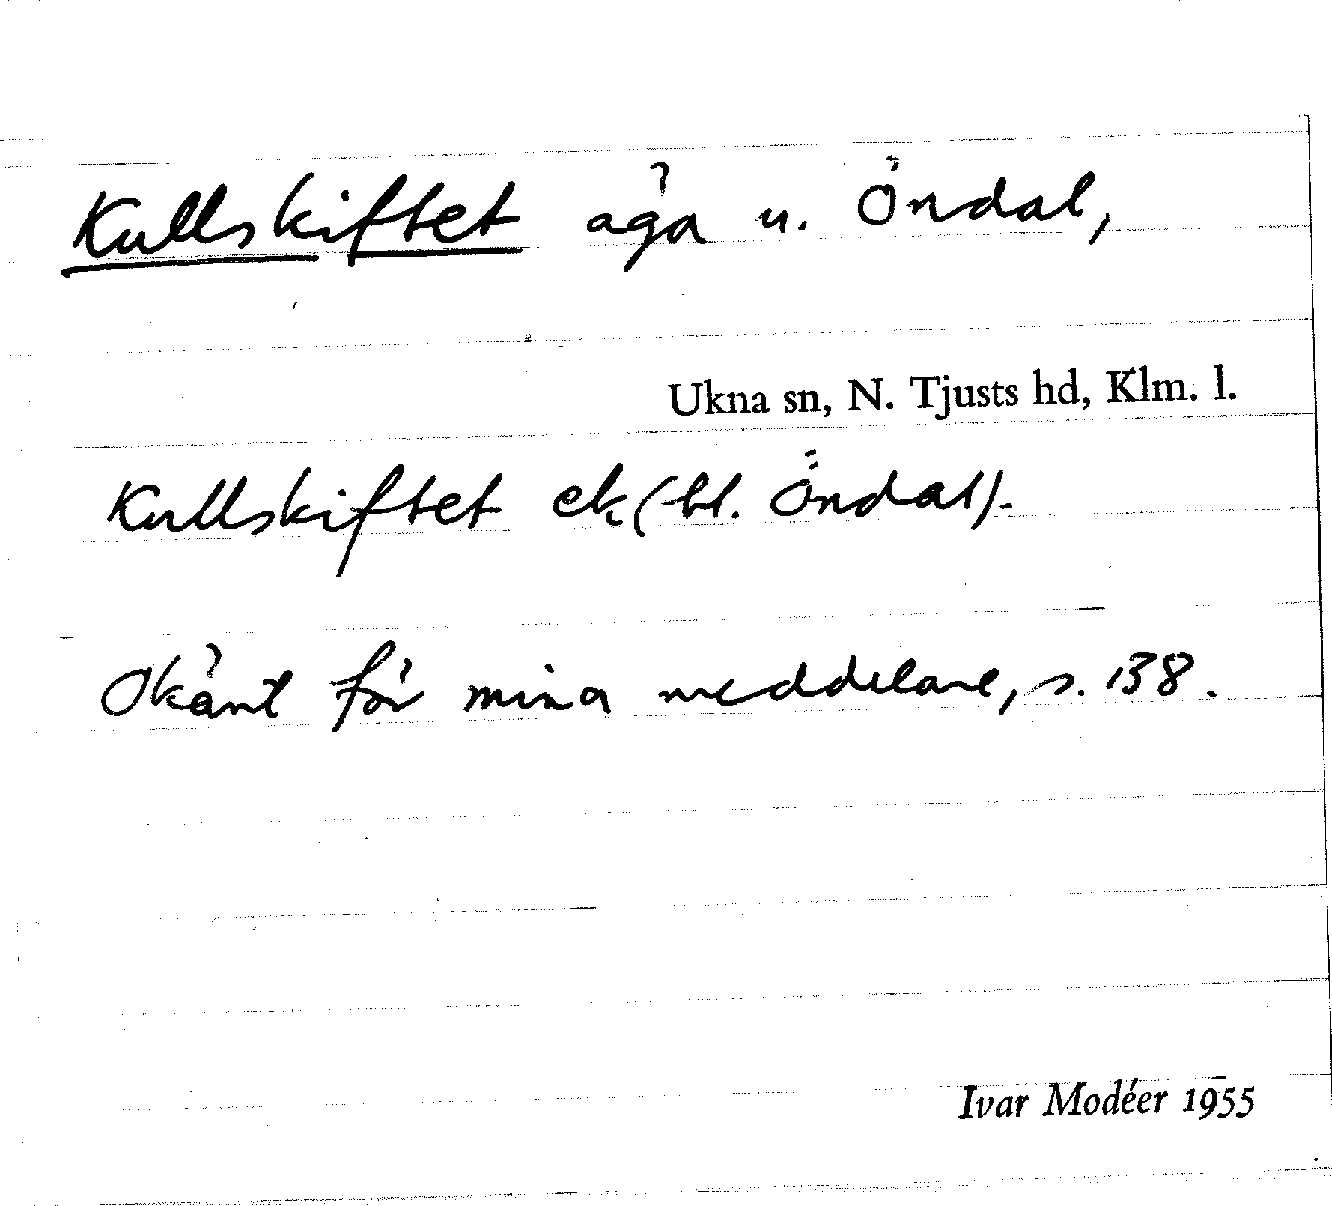 Kullskiftet äga u. Öndal,
Ukna sn, N. Tjusts hd, Klm. l.
Kullskiftet ek (-bl. Öndal).
Okänt för mina meddelare, s. 138.
Ivar Modéer 1955